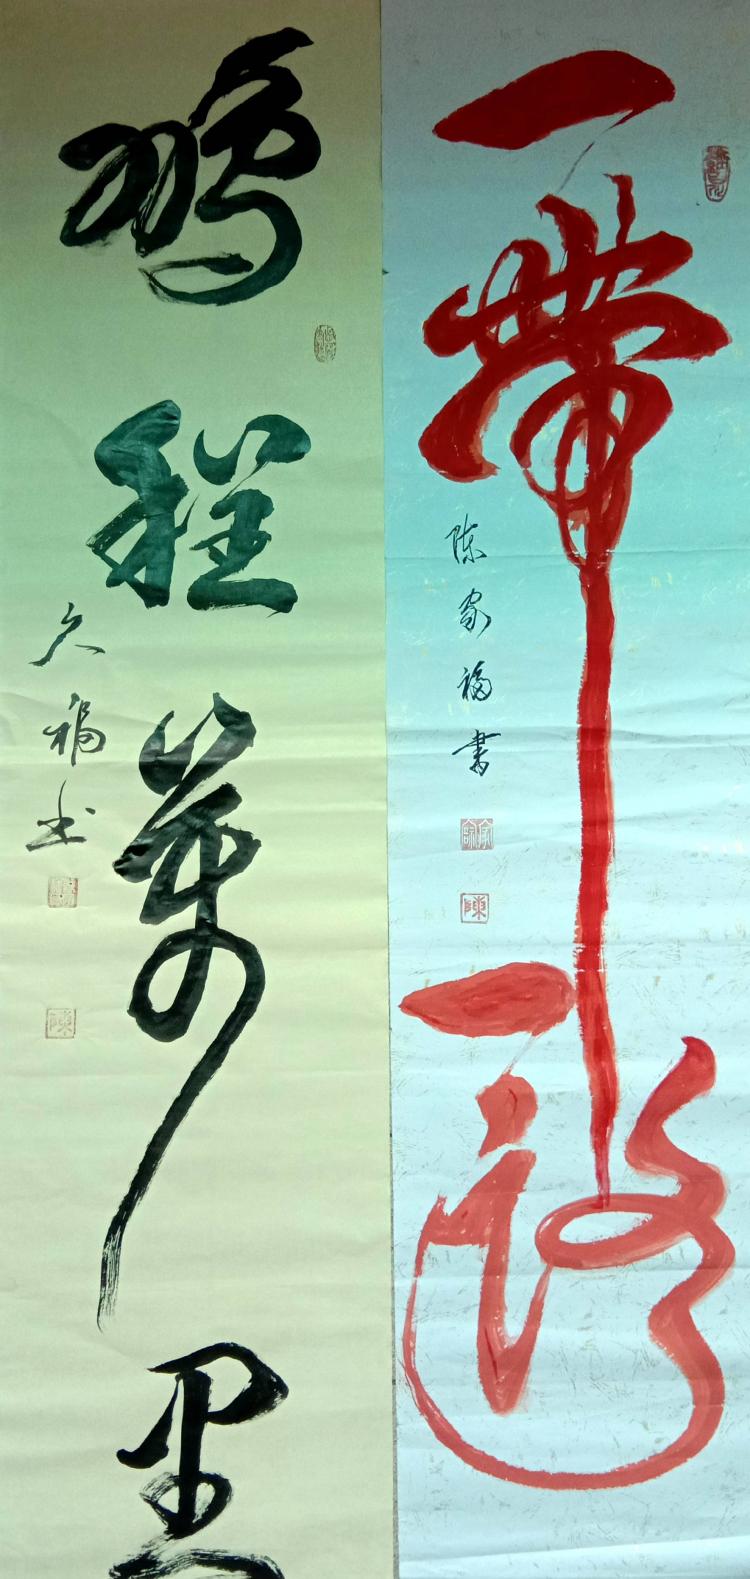 一帶一路
陈家福书
鹏程万里
久福书